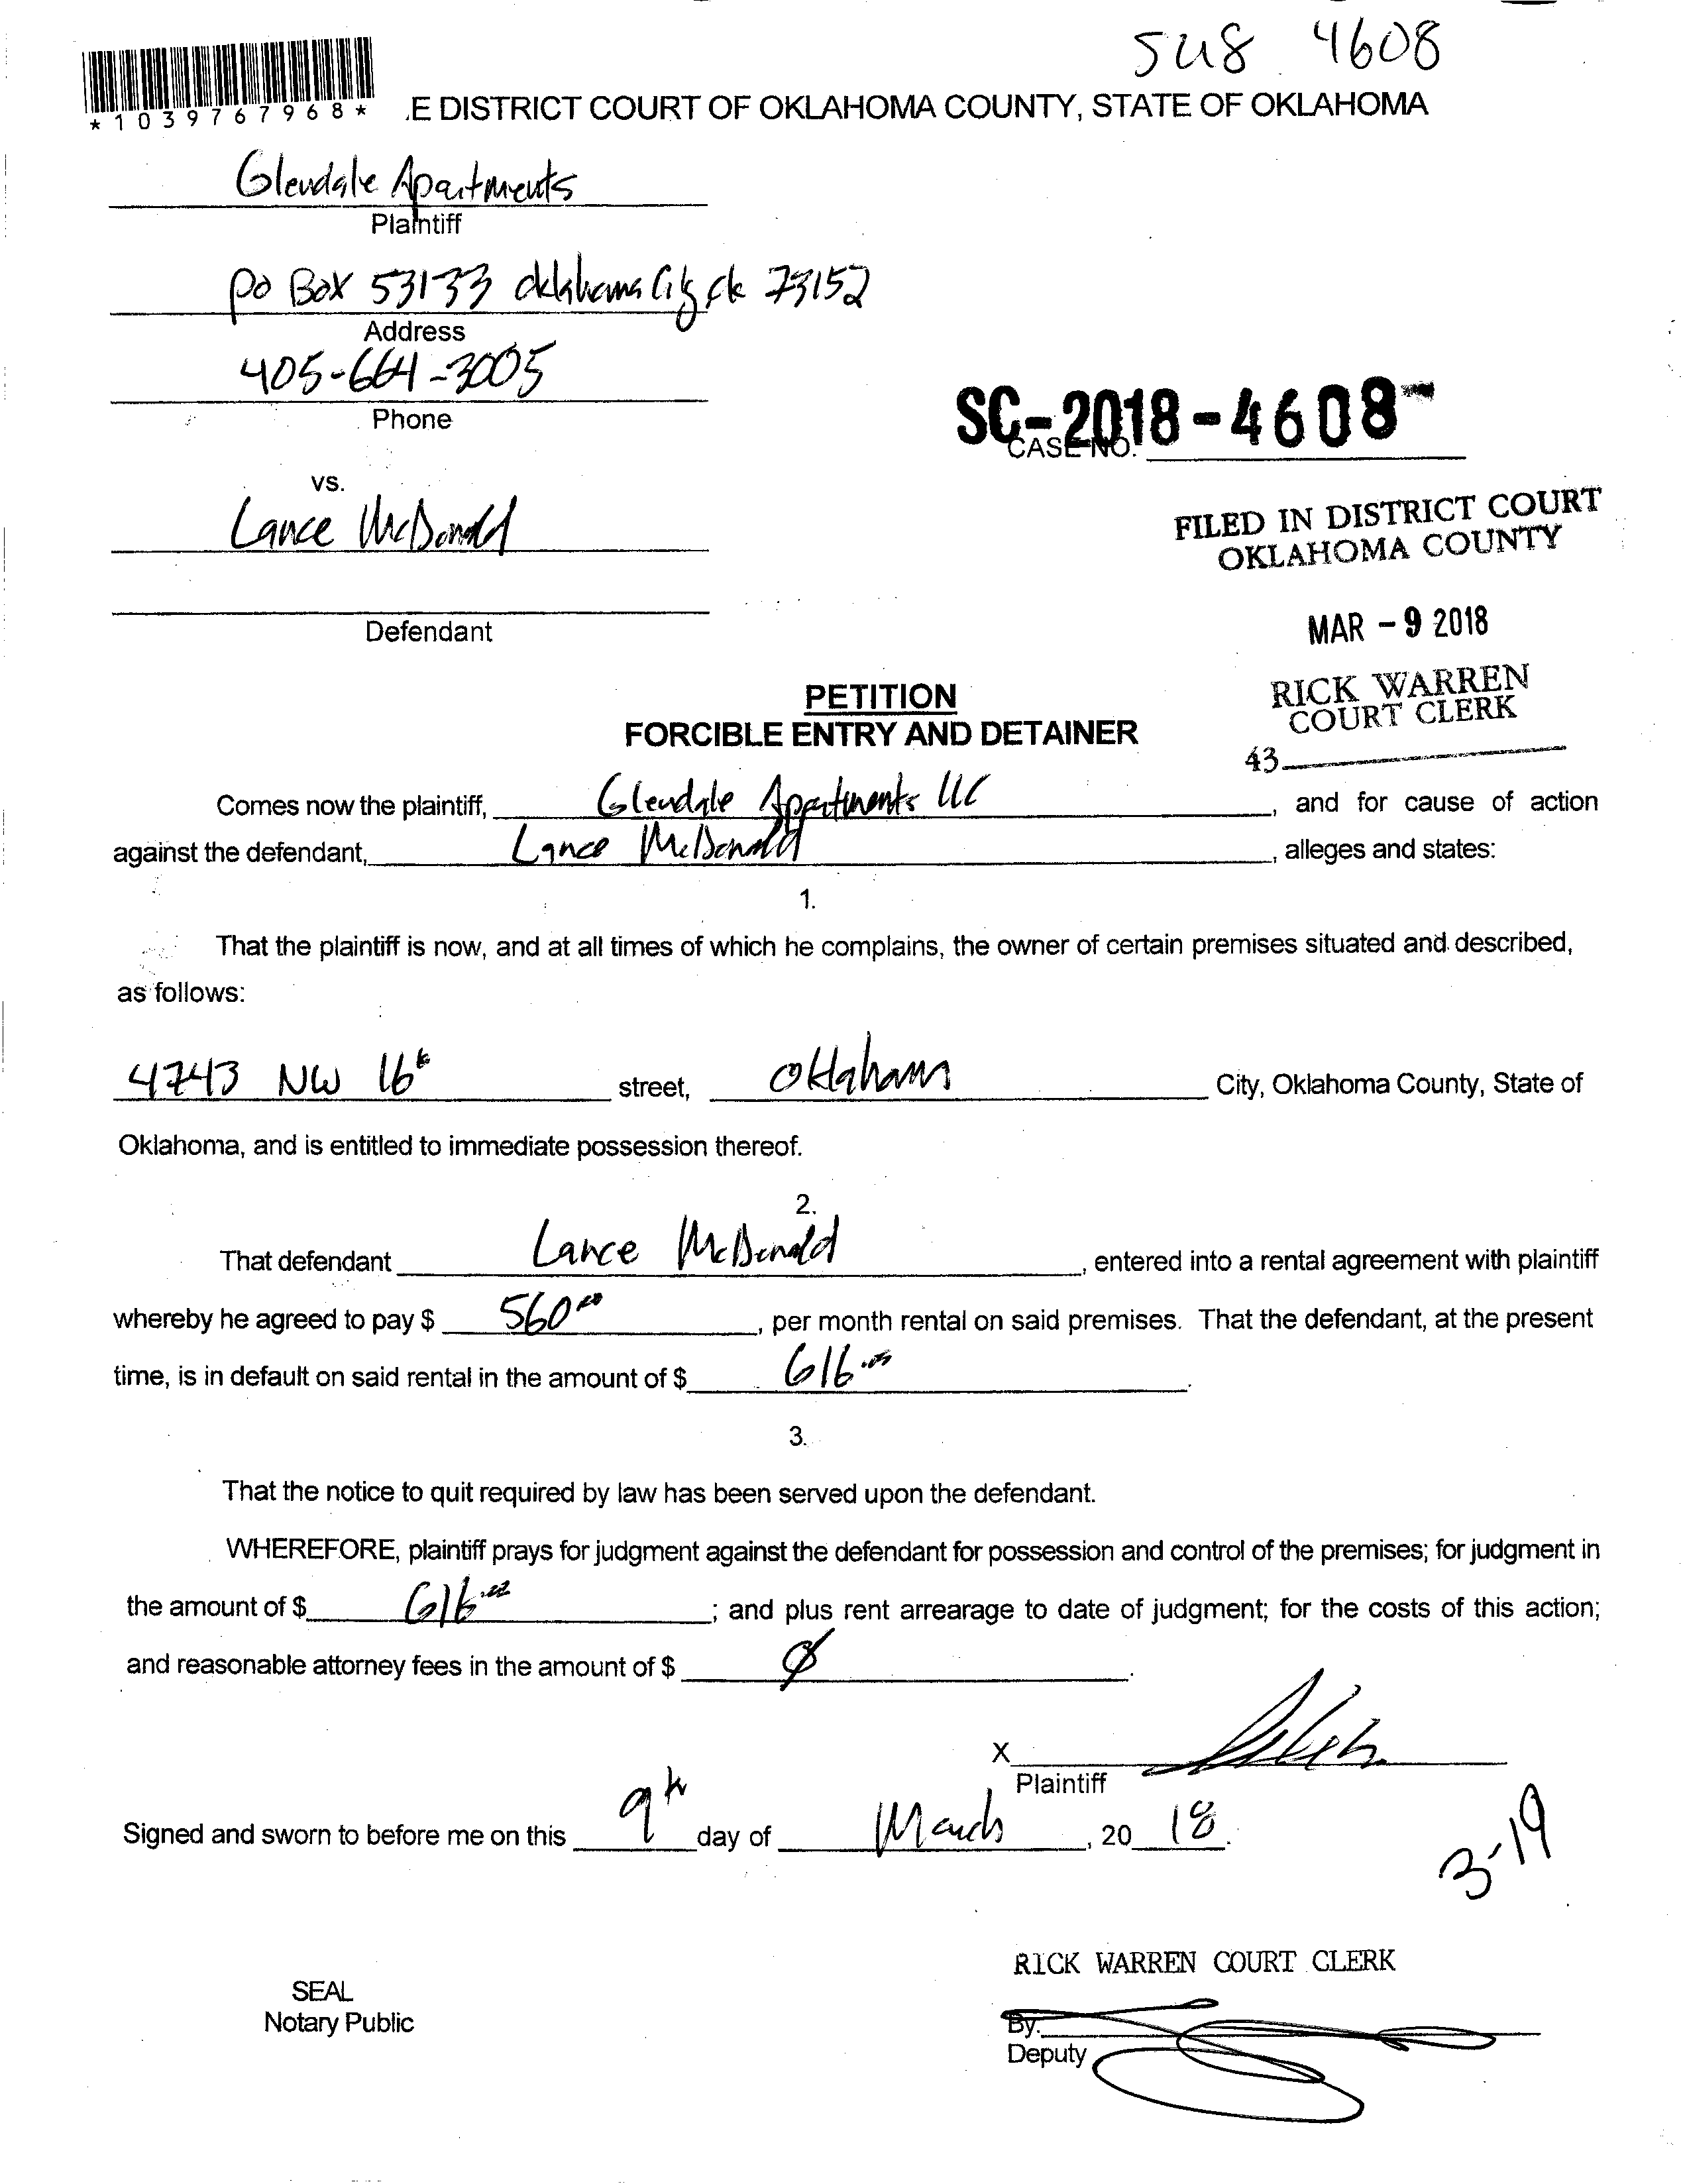 SUB 4608
*1039767968*
.E DISTRICT COURT OF OKLAHOMA COUNTY, STATE OF OKLAHOMA
Glendale Apartments
Plaintiff
PO Box 53133 Oklahoma City ok 73152
Address
405-664-3005
Phone
SC-2018-4608
CASE NO.
vs.
Lance McDonald
FILED IN DISTRICT COURT
OKLAHOMA COUNTY
Defendant
MAR - 9 2018
RICK WARREN
COURT CLERK
43
PETITION
FORCIBLE ENTRY AND DETAINER
Comes now the plaintiff, Glendale Apartments LLC, and for cause of action
against the defendant, Lance McDonald, alleges and states:
1.
That the plaintiff is now, and at all times of which he complains, the owner of certain premises situated and described,
as follows:
4743 NW 16th street, Oklahoma City, Oklahoma County, State of
Oklahoma, and is entitled to immediate possession thereof.
2.
That defendant Lance McDonald, entered into a rental agreement with plaintiff
whereby he agreed to pay $ 560.00, per month rental on said premises. That the defendant, at the present
time, is in default on said rental in the amount of $ 616.00.
3.
That the notice to quit required by law has been served upon the defendant.
WHEREFORE, plaintiff prays for judgment against the defendant for possession and control of the premises; for judgment in
the amount of $ 616.00; and plus rent arrearage to date of judgment; for the costs of this action;
and reasonable attorney fees in the amount of $ Ø.
X
Plaintiff
Signed and sworn to before me on this 9th day of March, 20 18.
3-19
RICK WARREN COURT CLERK
SEAL
Notary Public
By.
Deputy